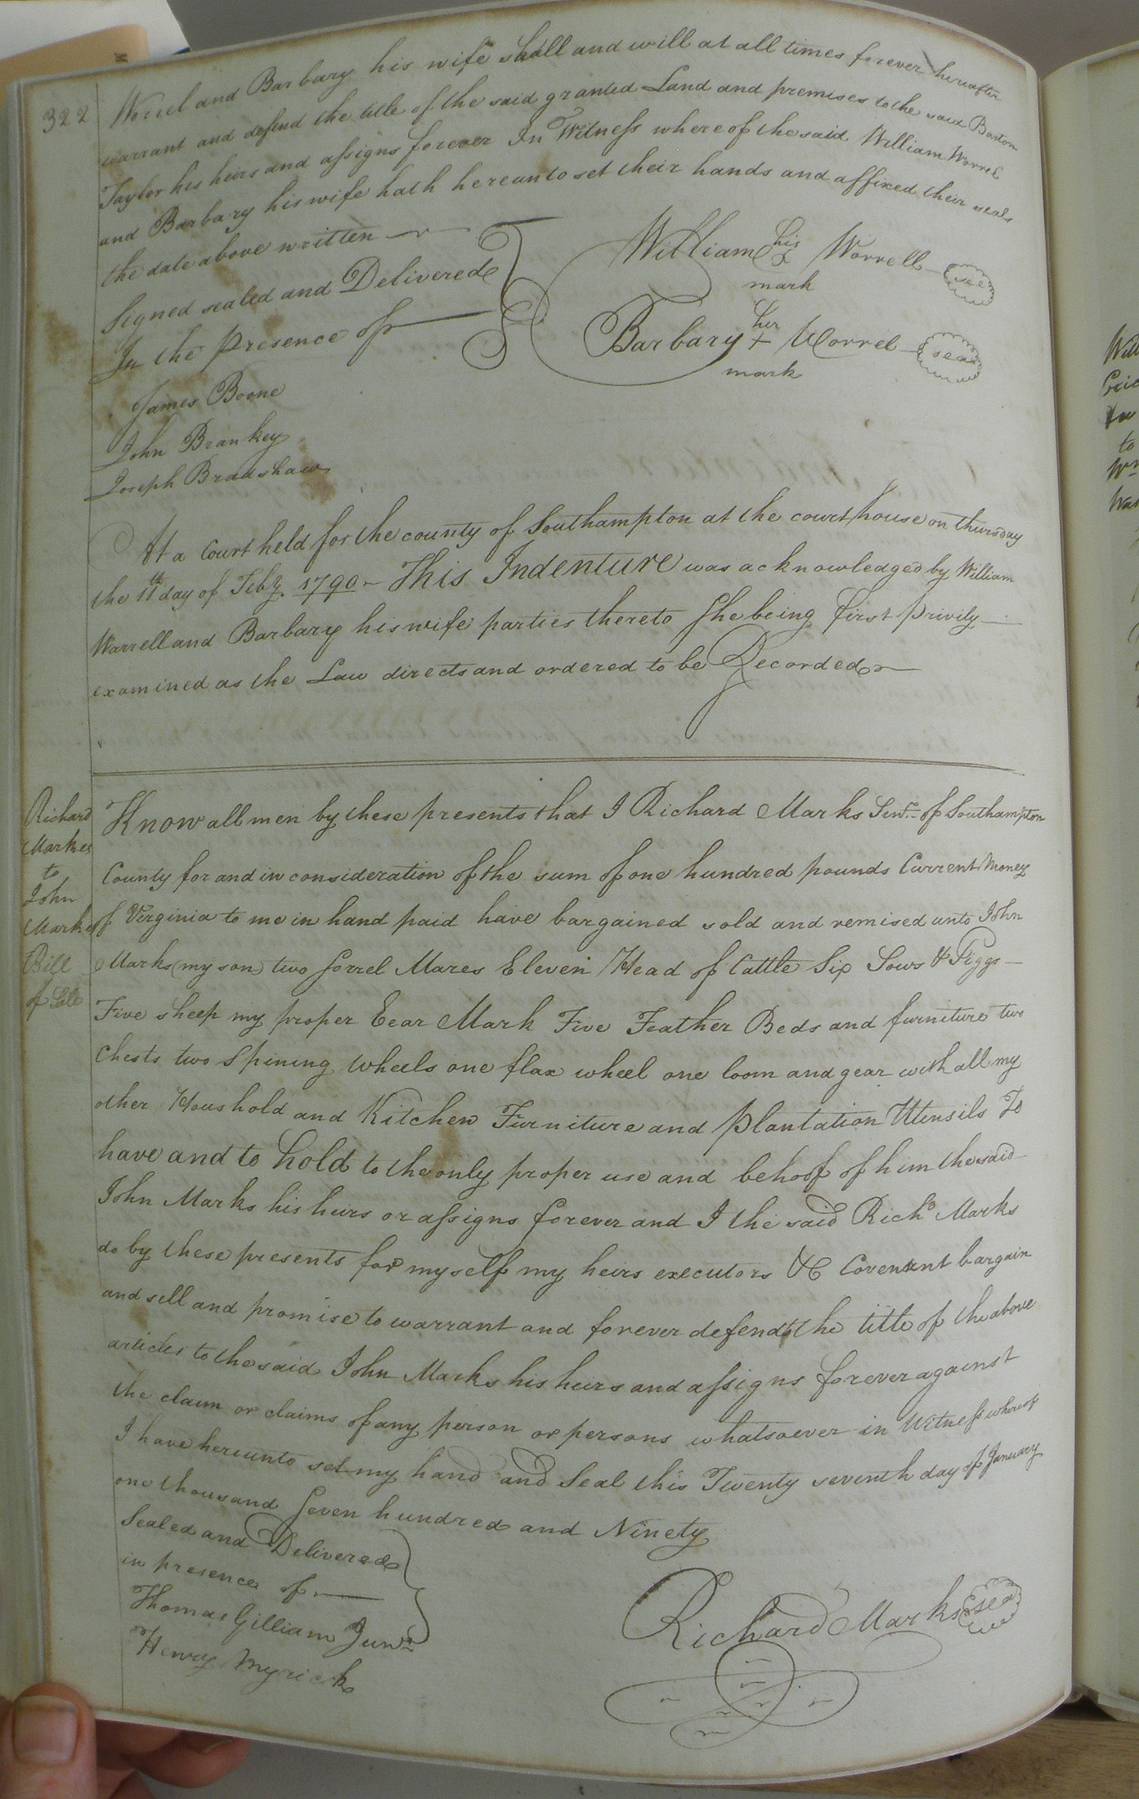 322
Worrel and Barbary his wife shall and will at all times forever hereafter
warrant and defend the title of the said granted Land and premises to the said Barton
Taylor his heirs and assigns forever In Witness whereof the said William Worrel
and Barbary his wife hath hereunto set their hands and affixed their seals
the date above written
Signed sealed and Delivered
In the presence of
William his x mark Worrell seal
Barbary her + mark Worrel seal
James Boone
John Brankey
Joseph Bradshaw
At a Court held for the county of Southampton at the court house on thursday
the 11th day of Feby. 1790 - This Indenture was acknowledged by William
Worrell and Barbary his wife parties thereto She being first privily
examined as the Law directs and ordered to be Recorded
Richard
Marks
to
John
Marks
Bill
of Sale
Know all men by these presents that I Richard Marks Senr. of Southampton
County for and in consideration of the sum of one hundred pounds Current Money
of Virginia to me in hand paid have bargained sold and remised unto John
Marks (my son) two Sorrel Mares Eleven Head of Cattle Six Sows & Piggs
Five sheep my proper Eear Mark Five Feather Beds and furniture two
Chests two Spining Wheels one flax wheel one loom and gear with all my
other Houshold and Kitchen Furniture and Plantation Utensils To
have and to hold to the only proper use and behoof of him the said
John Marks his heirs or assigns forever and I the said Richd Marks
do by these presents for myself my heirs executors &C Covenant bargain
and sell and promise to warrant and forever defend the title of the above
articles to the said John Marks his heirs and assigns forever against
the claim or claims of any person or persons whatsoever in Witness whereof
I have hereunto set my hand and Seal this Twenty seventh day of January
one thousand Seven hundred and Ninety
Sealed and Delivered
in presence of
Thomas Gilliam Junr.
Henry Myrick
Richard Marks seal